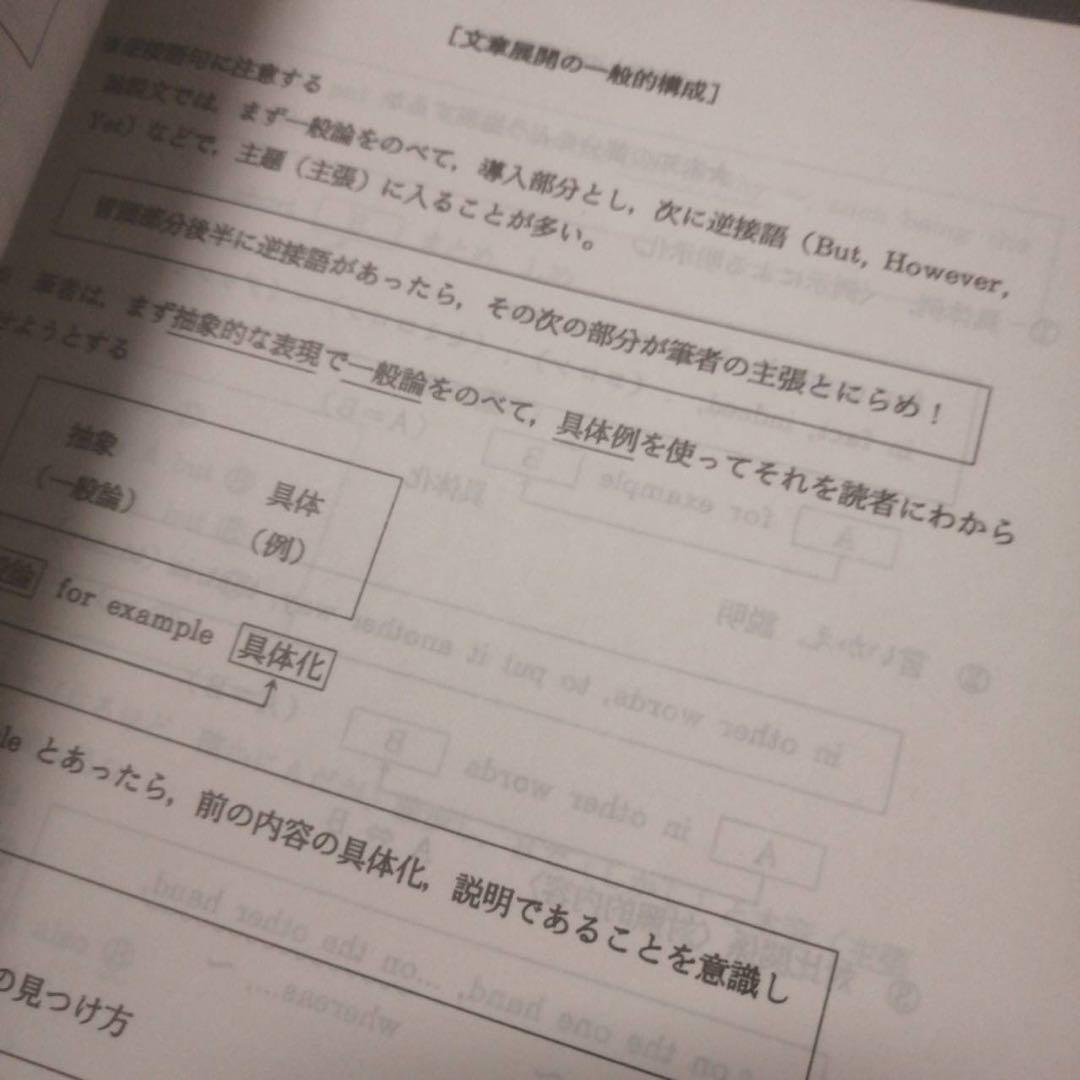 [文章展開の一般的構成]
逆接語句に注意する
論説文では，まず一般論をのべて，導入部分とし，次に逆接語（But, However,
Yet）などで，主題（主張）に入ることが多い。
冒頭部分後半に逆接語があったら，その次の部分が筆者の主張とにらめ！
筆者は，まず抽象的な表現で一般論をのべて，具体例を使ってそれを読者にわから
せようとする
抽象 具体
（一般論） （例）
for example 具体化
とあったら，前の内容の具体化，説明であることを意識し
の見つけ方